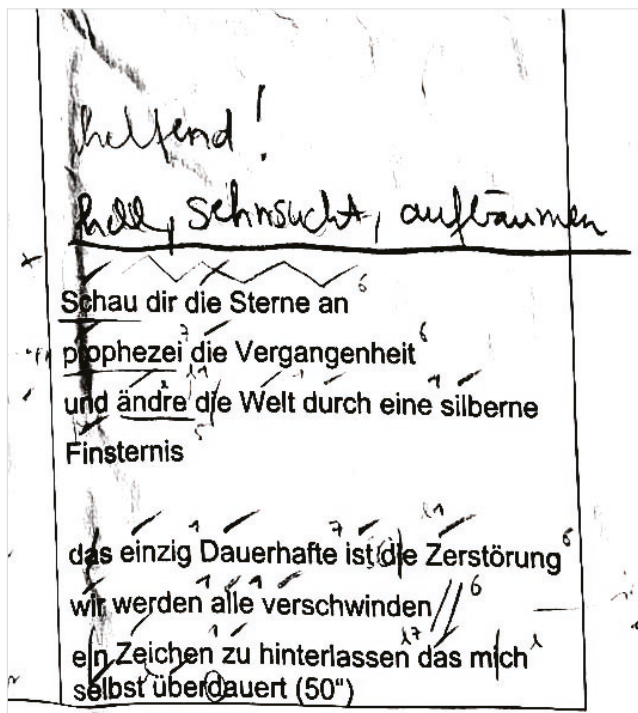 helfend!
hell, sehnsucht, aufbäumen
Schau dir die Sterne an 6
prophezei die Vergangenheit 6
und ändre die Welt durch eine silberne
Finsternis
das einzig Dauerhafte ist die Zerstörung 6
wir werden alle verschwinden // 6
ein Zeichen zu hinterlassen das mich
selbst überdauert (50")